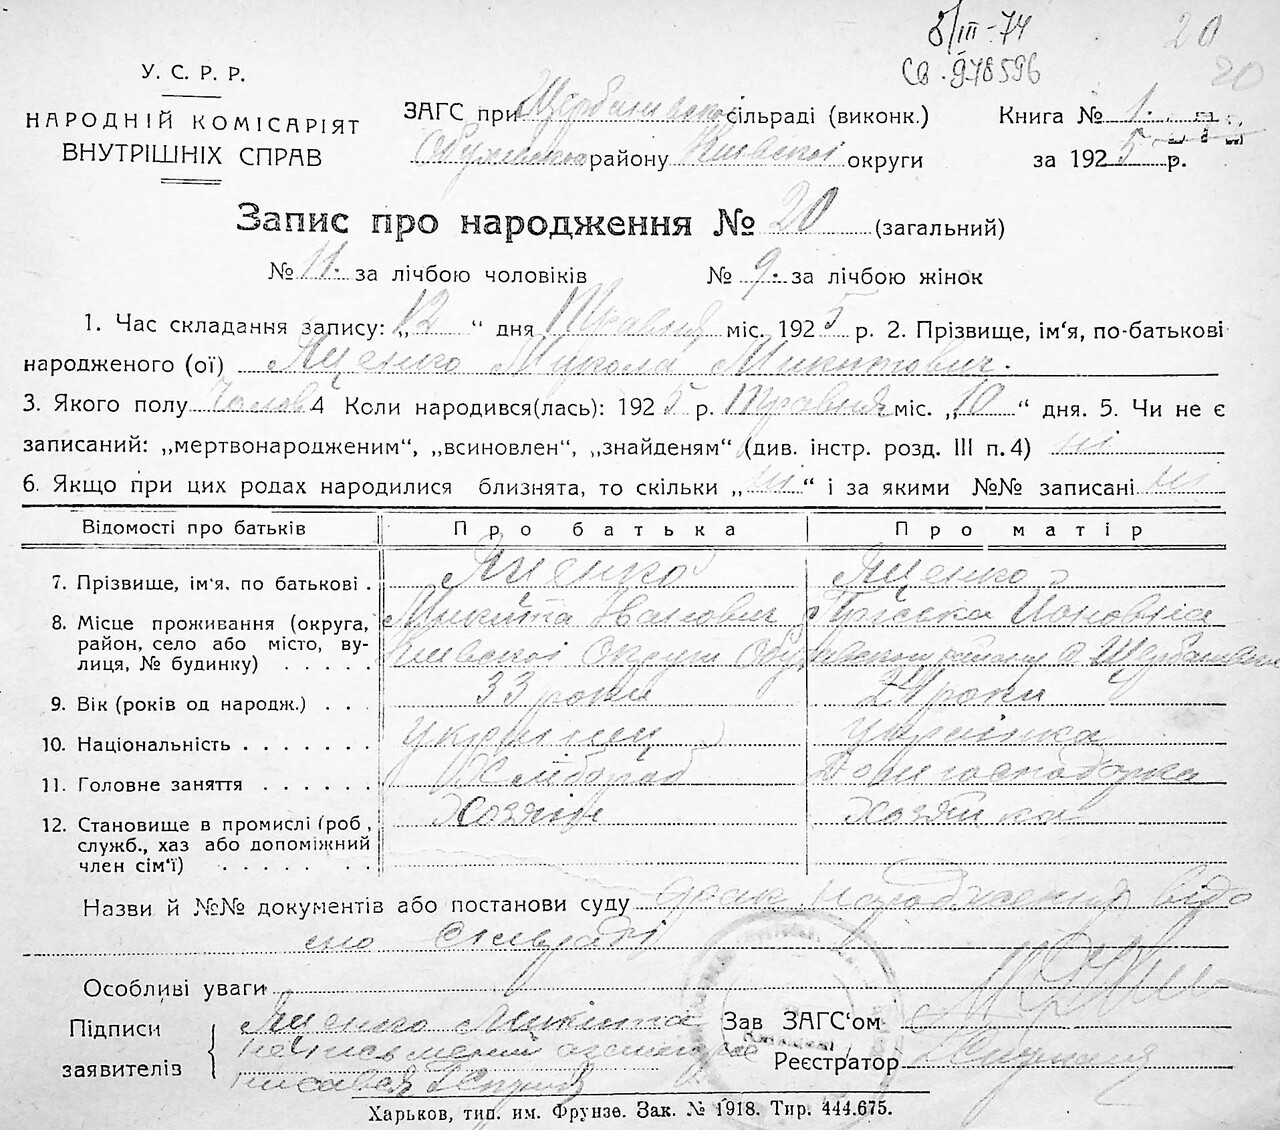 8/III-74
20
СВ. 978596
20
У. С. Р. Р.
НАРОДНІЙ КОМІСАРІЯТ
ВНУТРІШНІХ СПРАВ
ЗАГС при Щербанівско сільраді (виконк.)
Обухівско району Київскої округи
Книга № 1.
за 1925 р.
Запис про народження № 20 (загальний)
№ 11. за лічбою чоловіків № 9. за лічбою жінок
1. Час складання запису: „12“ дня Травня міс. 1925 р. 2. Прізвище, ім'я, по-батькові
народженого (ої) Яценко Микола Микитович.
3. Якого полу Чолов. 4 Коли народився(лась): 1925 р. Травня міс. „10“ дня. 5. Чи не є
записаний: „мертвонародженим“, „всиновлен“, „знайденям“ (див. інстр. розд. III п. 4) ні
6. Якщо при цих родах народилися близнята, то скільки „ні“ і за якими №№ записані ні
Відомості про батьків Про батька Про матір
7. Прізвище, ім'я, по батькові . Яценко Яценко
Микита Іванович Пріська Йоновна
8. Місце проживання (округа, район, село або місто, ву-
лиця, № будинку) . . . . . Київскої Округи Обухівского району с Щербанівка
9. Вік (років од народж.) . . . 33 роки 24 роки
10. Національність . . . . . . . Українец Українка
11. Головне заняття . . . . . . Хлібороб Домгосподарка
12. Становище в промислі (роб., Хозяїн Хозяйка
служб., хаз або допоміжний
член сім'ї) . . . . . . .
Назви й №№ документів або постанови суду народження відо
мо Сільраді
Особливі уваги
Підписи Яценко Микита Зав ЗАГС'ом
заявителів Реєстратор
Харьков, тип. им. Фрунзе. Зак. № 1918. Тир. 444.675.